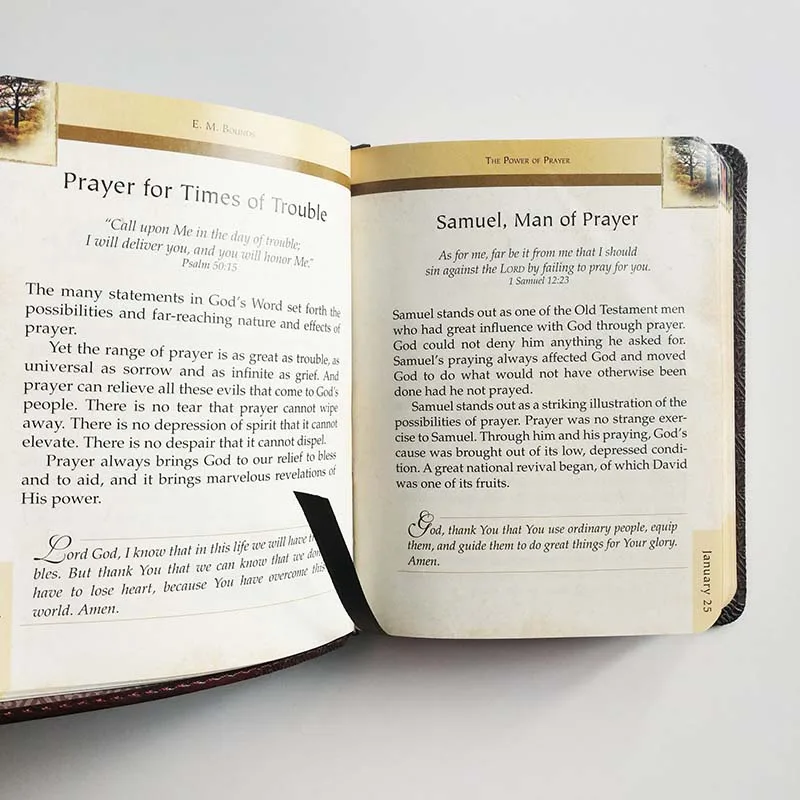 E. M. Bounds
Prayer for Times of Trouble
“Call upon Me in the day of trouble;
I will deliver you, and you will honor Me.”
Psalm 50:15
The many statements in God’s Word set forth the
possibilities and far-reaching nature and effects of
prayer.
Yet the range of prayer is as great as trouble, as
universal as sorrow and as infinite as grief. And
prayer can relieve all these evils that come to God’s
people. There is no tear that prayer cannot wipe
away. There is no depression of spirit that it cannot
elevate. There is no despair that it cannot dispel.
Prayer always brings God to our relief to bless
and to aid, and it brings marvelous revelations of
His power.
Lord God, I know that in this life we will have
bles. But thank You that we can know that we
have to lose heart, because You have overcome this
world. Amen.
The Power of Prayer
Samuel, Man of Prayer
As for me, far be it from me that I should
sin against the Lord by failing to pray for you.
1 Samuel 12:23
Samuel stands out as one of the Old Testament men
who had great influence with God through prayer.
God could not deny him anything he asked for.
Samuel’s praying always affected God and moved
God to do what would not have otherwise been
done had he not prayed.
Samuel stands out as a striking illustration of the
possibilities of prayer. Prayer was no strange exer-
cise to Samuel. Through him and his praying, God’s
cause was brought out of its low, depressed condi-
tion. A great national revival began, of which David
was one of its fruits.
God, thank You that You use ordinary people, equip
them, and guide them to do great things for Your glory.
Amen.
January 25